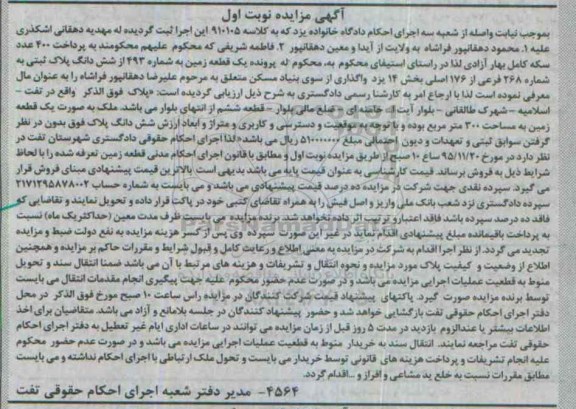 آگهی مزایده نوبت اول
بموجب نیابت واصله از شعبه سه اجرای احکام دادگاه خانواده یزد که به کلاسه ۹۱۰۱۰۵ این اجرا ثبت گردیده له مهدیه دهقانی اشکذری
علیه ۱. محمود دهقانپور فراشاه به ولایت از آیدا و معین دهقانپور ۲. فاطمه شریفی که محکوم علیهم محکومند به پرداخت ۴۰۰ عدد
سکه کامل بهار آزادی لذا در راستای استیفای محکوم به، محکوم له پرونده یک قطعه زمین به شماره ۴۹۳ از شش دانگ پلاک ثبتی به
شماره ۲۶۸ فرعی از ۱۷۶ اصلی بخش ۱۴ یزد واگذاری از سوی بنیاد مسکن متعلق به مرحوم علیرضا دهقانپور فراشاه را به عنوان مال
معرفی نموده است لذا با ارجاع امر به کارشنا رسمی دادگستری به شرح ذیل ارزیابی گردیده است: «پلاک فوق الذکر واقع در تفت -
اسلامیه - شهرک طالقانی - بلوار آیت ا... خامنه ای - ضلع مالی بلوار - قطعه ششم از انتهای بلوار می باشد. ملک به صورت یک قطعه
زمین به مساحت ۳۰۰ متر مربع بوده و با توجه به موقعیت و دسترسی و کاربری و متراژ و ابعاد ارزش شش دانگ پلاک فوق بدون در نظر
گرفتن سوابق ثبتی و تعهدات و دیون احتمالی مبلغ ۵۱۰۰۰۰۰۰۰ ریال می باشد» لذا اجرای احکام حقوقی دادگستری شهرستان تفت در
نظر دارد در مورخ ۹۵/۱۱/۲۰ ساع ۱۰ صبح از طریق مزایده نوبت اول و مطابق با قانون اجرای احکام مدنی قطعه زمین تعرفه شده را با لحاظ
شرایط ذیل به فروش برساند. قیمت کارشناسی به عنوان قیمت پایه می باشد بدیهی است بالاترین قیمت پیشنهادی مبنای فروش قرار
می گیرد. سپرده نقدی جهت شرکت در مزایده ده درصد قیمت پیشنهادی می باشد و می بایست به شماره حساب ۲۱۷۱۲۹۵۸۷۸۰۰۲
سپرده دادگستری نزد شعب بانک ملی واریز و اصل فیش را به همراه تقاضای کتبی خود در پاکت قرار داده و تحویل نمایند و تقاضایی که
فاقد ده درصد سپرده باشد فاقد اعتبار و ترتیب اثر داده نخواهد شد. برنده مزایده می بایست ظرف مدت معین (حداکثر یک ماه) نسبت
به پرداخت باقیمانده مبلغ پیشنهادی اقدام نماید در غیر این صورت سپرده وی پس از کسر هزینه مزایده به نفع دولت ضبط و مزایده
تجدید می گردد. از نظر اجرا اقدام به شرکت در مزایده به معنی اطلاع و رعایت کامل و قبول شرایط و مقررات حاکم بر مزایده و همچنین
اطلاع از وضعیت و کیفیت پلاک مورد مزایده و نحوه انتقال و تشریفات و هزینه های مرتبط با آن می باشد ضمنا انتقال سند و تحویل
منوط به قطعیت عملیات اجرایی مزایده می باشد و در صورت عدم حضور محکوم علیه جهت پیگیری انجام مقدمات انتقال می بایست
توسط برنده مزایده صورت گیرد. پاکتهای پیشنهاد قیمت شرکت کنندگان در مزایده راس ساعت ۱۰ صبح مورخ فوق الذکر در محل
دفتر اجرای احکام حقوقی تفت بازگشایی خواهد شد و حضور پیشنهاد کنندگان در جلسه بلامانع و آزاد می باشد. متقاضیان برای اخذ
اطلاعات بیشتر یا عندالزوم بازدید در مدت ۵ روز قبل از زمان مزایده می توانند در ساعات اداری ایام غیر تعطیل به دفتر اجرای احکام
حقوقی تفت مراجعه نمایند. انتقال سند به خریدار منوط به قطعیت عملیات اجرایی مزایده می باشد و در صورت عدم حضور محکوم
علیه انجام تشریفات و پرداخت هزینه های قانونی توسط خریدار می بایست و تحویل ملک ارتباطی با اجرای احکام نداشته و می بایست
مطابق مقررات نسبت به خلع ید مشاعی و افراز و ... اقدام گردد.
۴۵۶۴- مدیر دفتر شعبه اجرای احکام حقوقی تفت